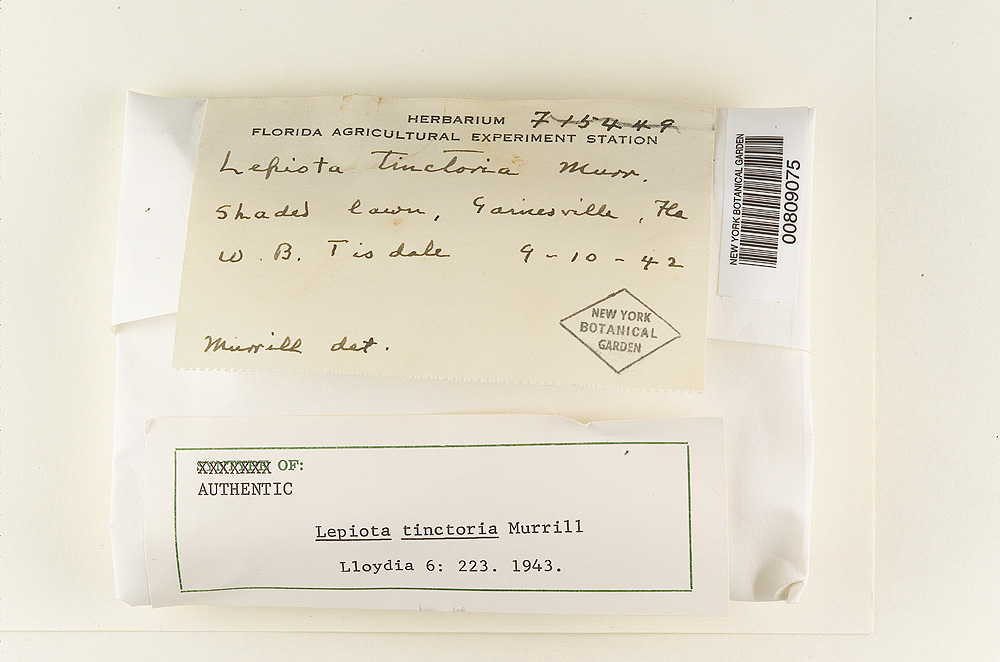 HERBARIUM 715449
FLORIDA AGRICULTURAL EXPERIMENT STATION
Lepiota tinctoria Murr.
Shaded lawn, Gainesville, Fla
W. B. Tisdale 9-10-42
Murrill det.
NEW YORK
BOTANICAL
GARDEN
NEW YORK BOTANICAL GARDEN
00809075
OF:
AUTHENTIC
Lepiota tinctoria Murrill
Lloydia 6: 223. 1943.